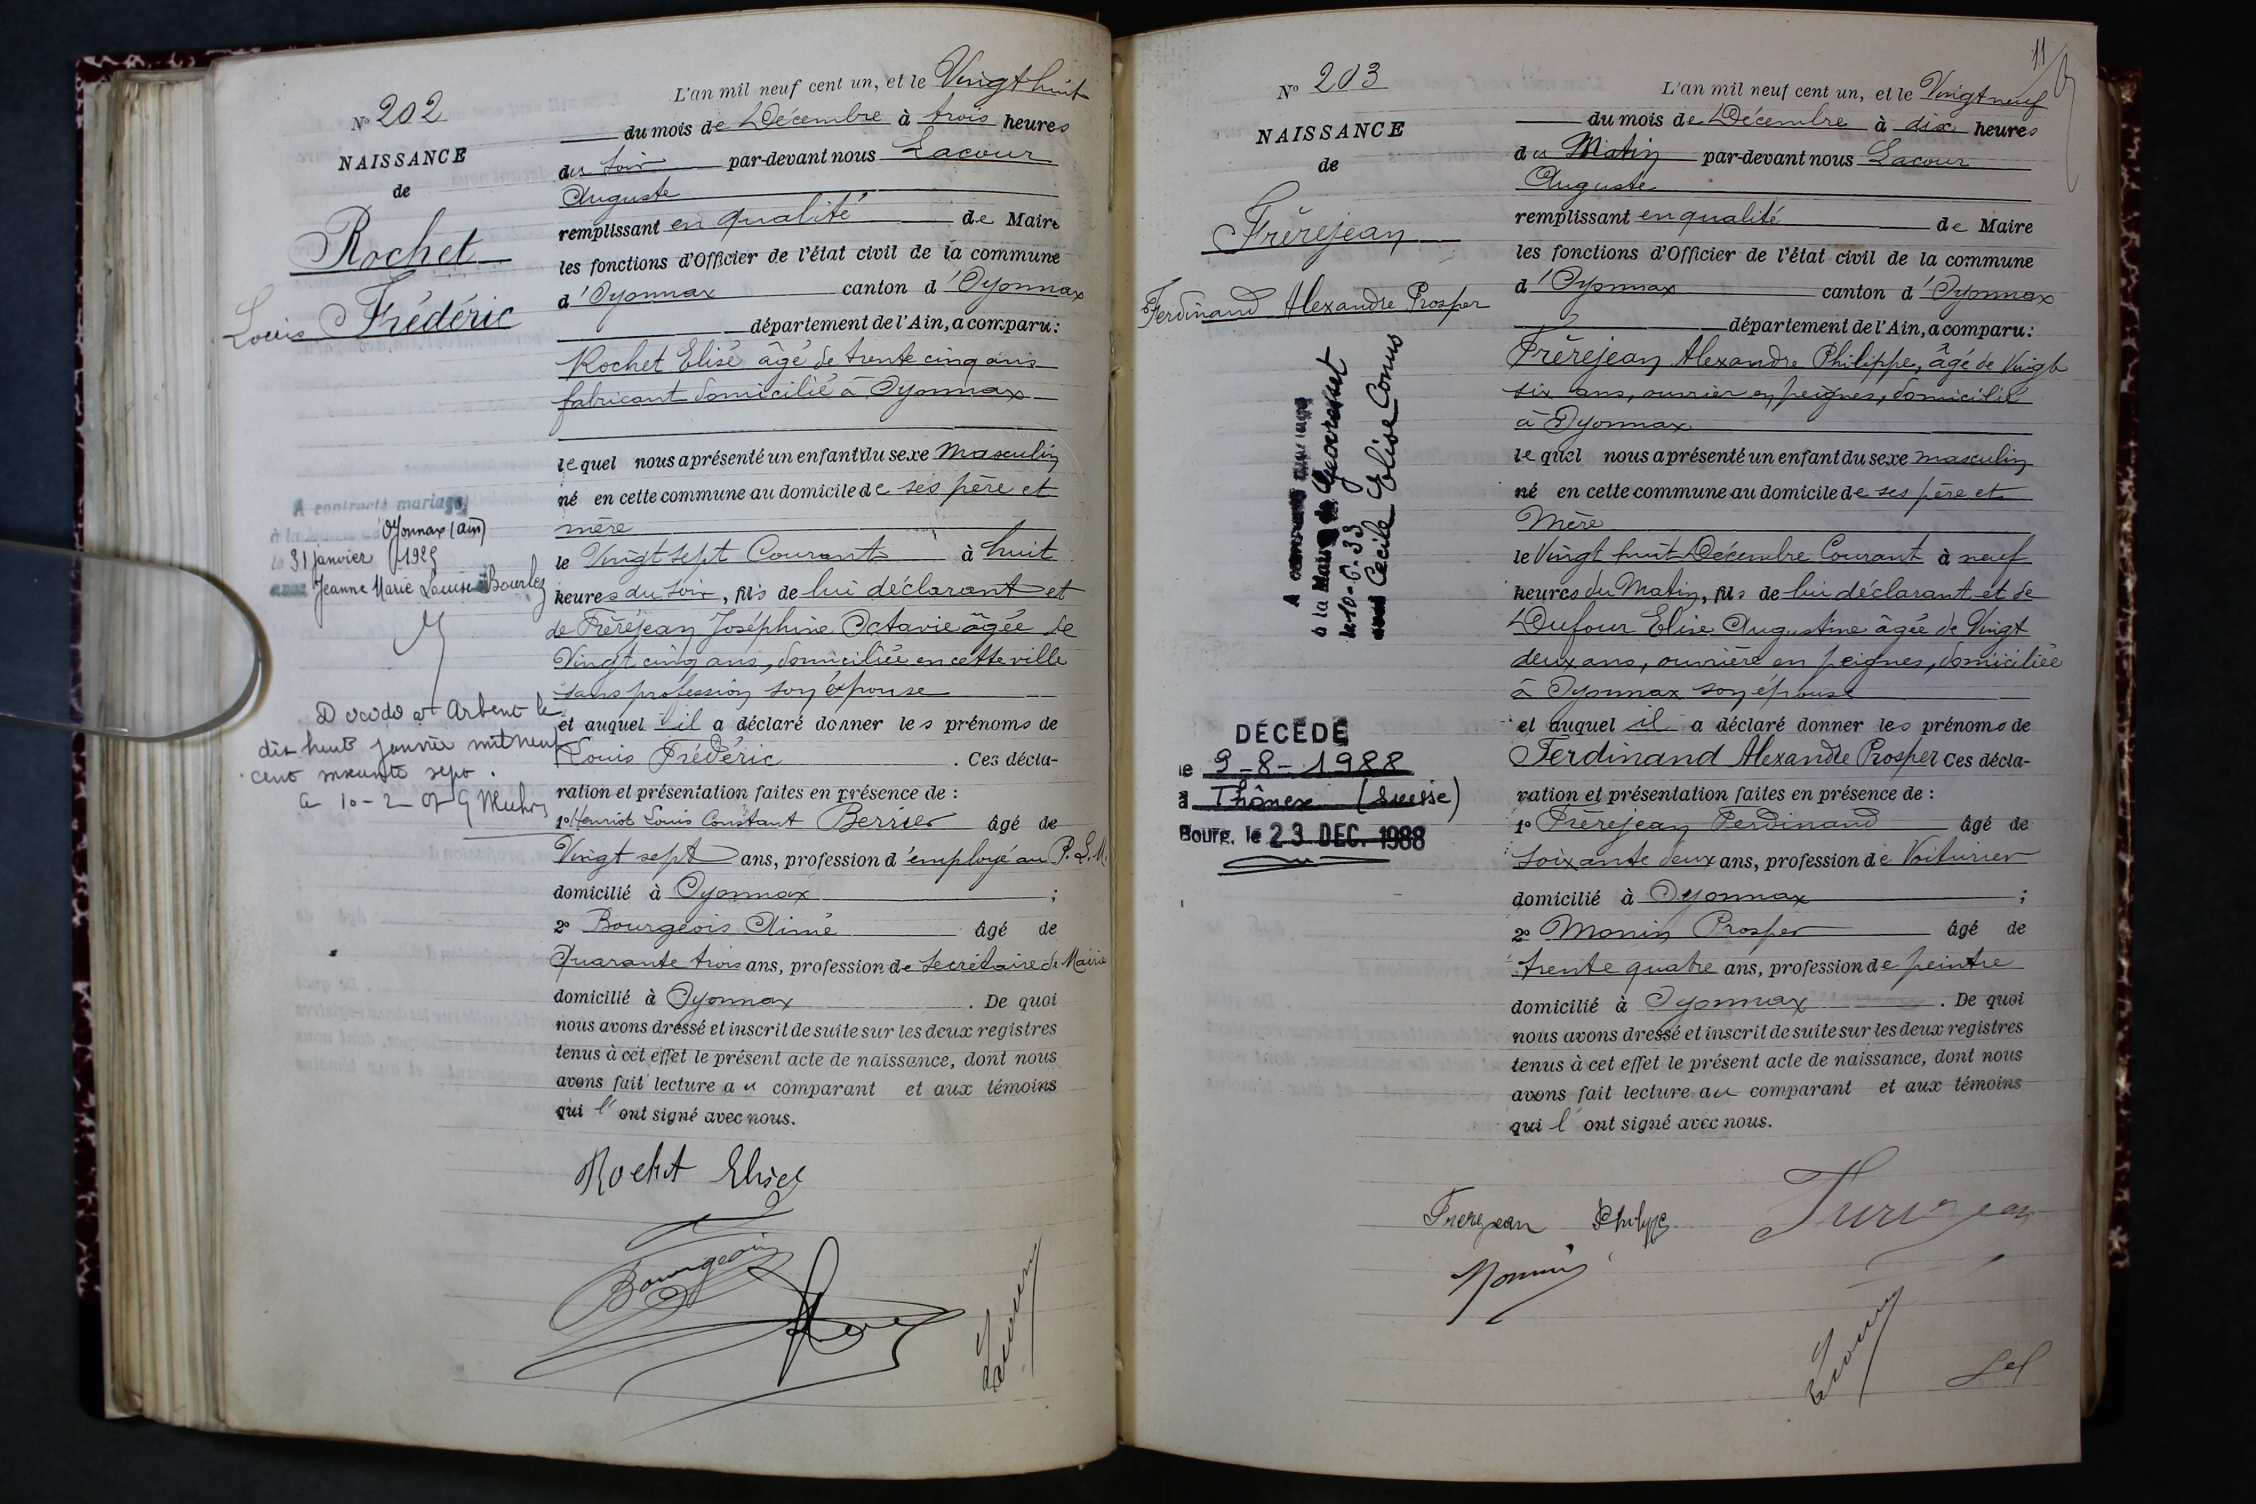 N° 202
NAISSANCE
de
Rochet
Louis Frédéric
A contracté mariage
à la
Oyonnax (ain)
le 31 janvier 1925
avec Jeanne Marie Louise Bourlez
Décédé à Arbent le
dix huit janvier mil neuf
cent soixante sept.
L'an mil neuf cent un, et le Vingt huit
du mois de Décembre à trois heures
du soir par-devant nous Lacour
Auguste
remplissant en qualité de Maire
les fonctions d'Officier de l'état civil de la commune
d'Oyonnax canton d'Oyonnax
département de l'Ain, a comparu:
Rochet Elisé âgé de trente cinq ans
fabricant domicilié à Oyonnax
lequel nous a présenté un enfant du sexe Masculin
né en cette commune au domicile de ses père et
mère
le Vingt sept Courant à huit
heures du soir, fils de lui déclarant et
de Frèrejean Joséphine Octavie âgée de
Vingt cinq ans, domiciliée en cette ville
sans profession son épouse
et auquel il a déclaré donner les prénoms de
Louis Frédéric. Ces décla-
ration et présentation faites en présence de :
1° Henriot Louis Constant Berrier âgé de
Vingt sept ans, profession d'employé au P.L.M.
domicilié à Oyonnax ;
2° Bourgeois Aimé âgé de
Quarante trois ans, profession de secrétaire de Mairie
domicilié à Oyonnax. De quoi
nous avons dressé et inscrit de suite sur les deux registres
tenus à cet effet le présent acte de naissance, dont nous
avons fait lecture au comparant et aux témoins
qui l'ont signé avec nous.
Rochet Elisé
Bourgeois
Lacour
11
N° 203
NAISSANCE
de
Frèrejean
Ferdinand Alexandre Prosper
à la Mairie de Geovreisset
le 10-6-33
avec Cécile Elise Comus
DÉCÉDÉ
le 9-8-1988
à Thônex (Suisse)
Bourg, le 23 DEC. 1988
L'an mil neuf cent un, et le Vingt neuf
du mois de Décembre à dix heures
du Matin par-devant nous Lacour
Auguste
remplissant en qualité de Maire
les fonctions d'Officier de l'état civil de la commune
d'Oyonnax canton d'Oyonnax
département de l'Ain, a comparu:
Frèrejean Alexandre Philippe, âgé de Vingt
six ans, ouvrier en peignes, domicilié
à Oyonnax
lequel nous a présenté un enfant du sexe masculin
né en cette commune au domicile de ses père et
Mère
le Vingt huit Décembre Courant à neuf
heures du Matin, fils de lui déclarant et de
Dufour Elise Augustine âgée de Vingt
deux ans, ouvrière en peignes, domiciliée
à Oyonnax son épouse
et auquel il a déclaré donner les prénoms de
Ferdinand Alexandre Prosper Ces décla-
ration et présentation faites en présence de :
1° Frèrejean Ferdinand âgé de
soixante deux ans, profession de Voiturier
domicilié à Oyonnax ;
2° Monin Prosper âgé de
trente quatre ans, profession de peintre
domicilié à Oyonnax. De quoi
nous avons dressé et inscrit de suite sur les deux registres
tenus à cet effet le présent acte de naissance, dont nous
avons fait lecture au comparant et aux témoins
qui l'ont signé avec nous.
Frerejean Philippe
Frerejean
Monin
Lacour